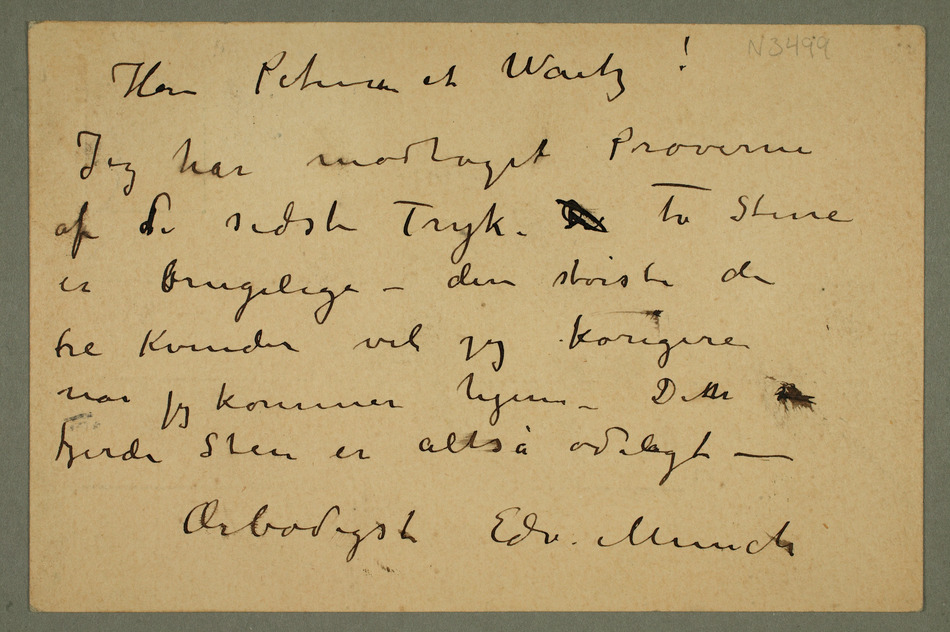 N3499
Herr Petersen et Waitz!
Jeg har modtaget Prøverne
af de sidste Tryk. to Stene
er brugelige – den største de
tre Kvinder vil jeg korigere
når jeg kommer hjem – Den
fjerde Sten er altså ødelagt –
Ærbødigst Edv. Munch